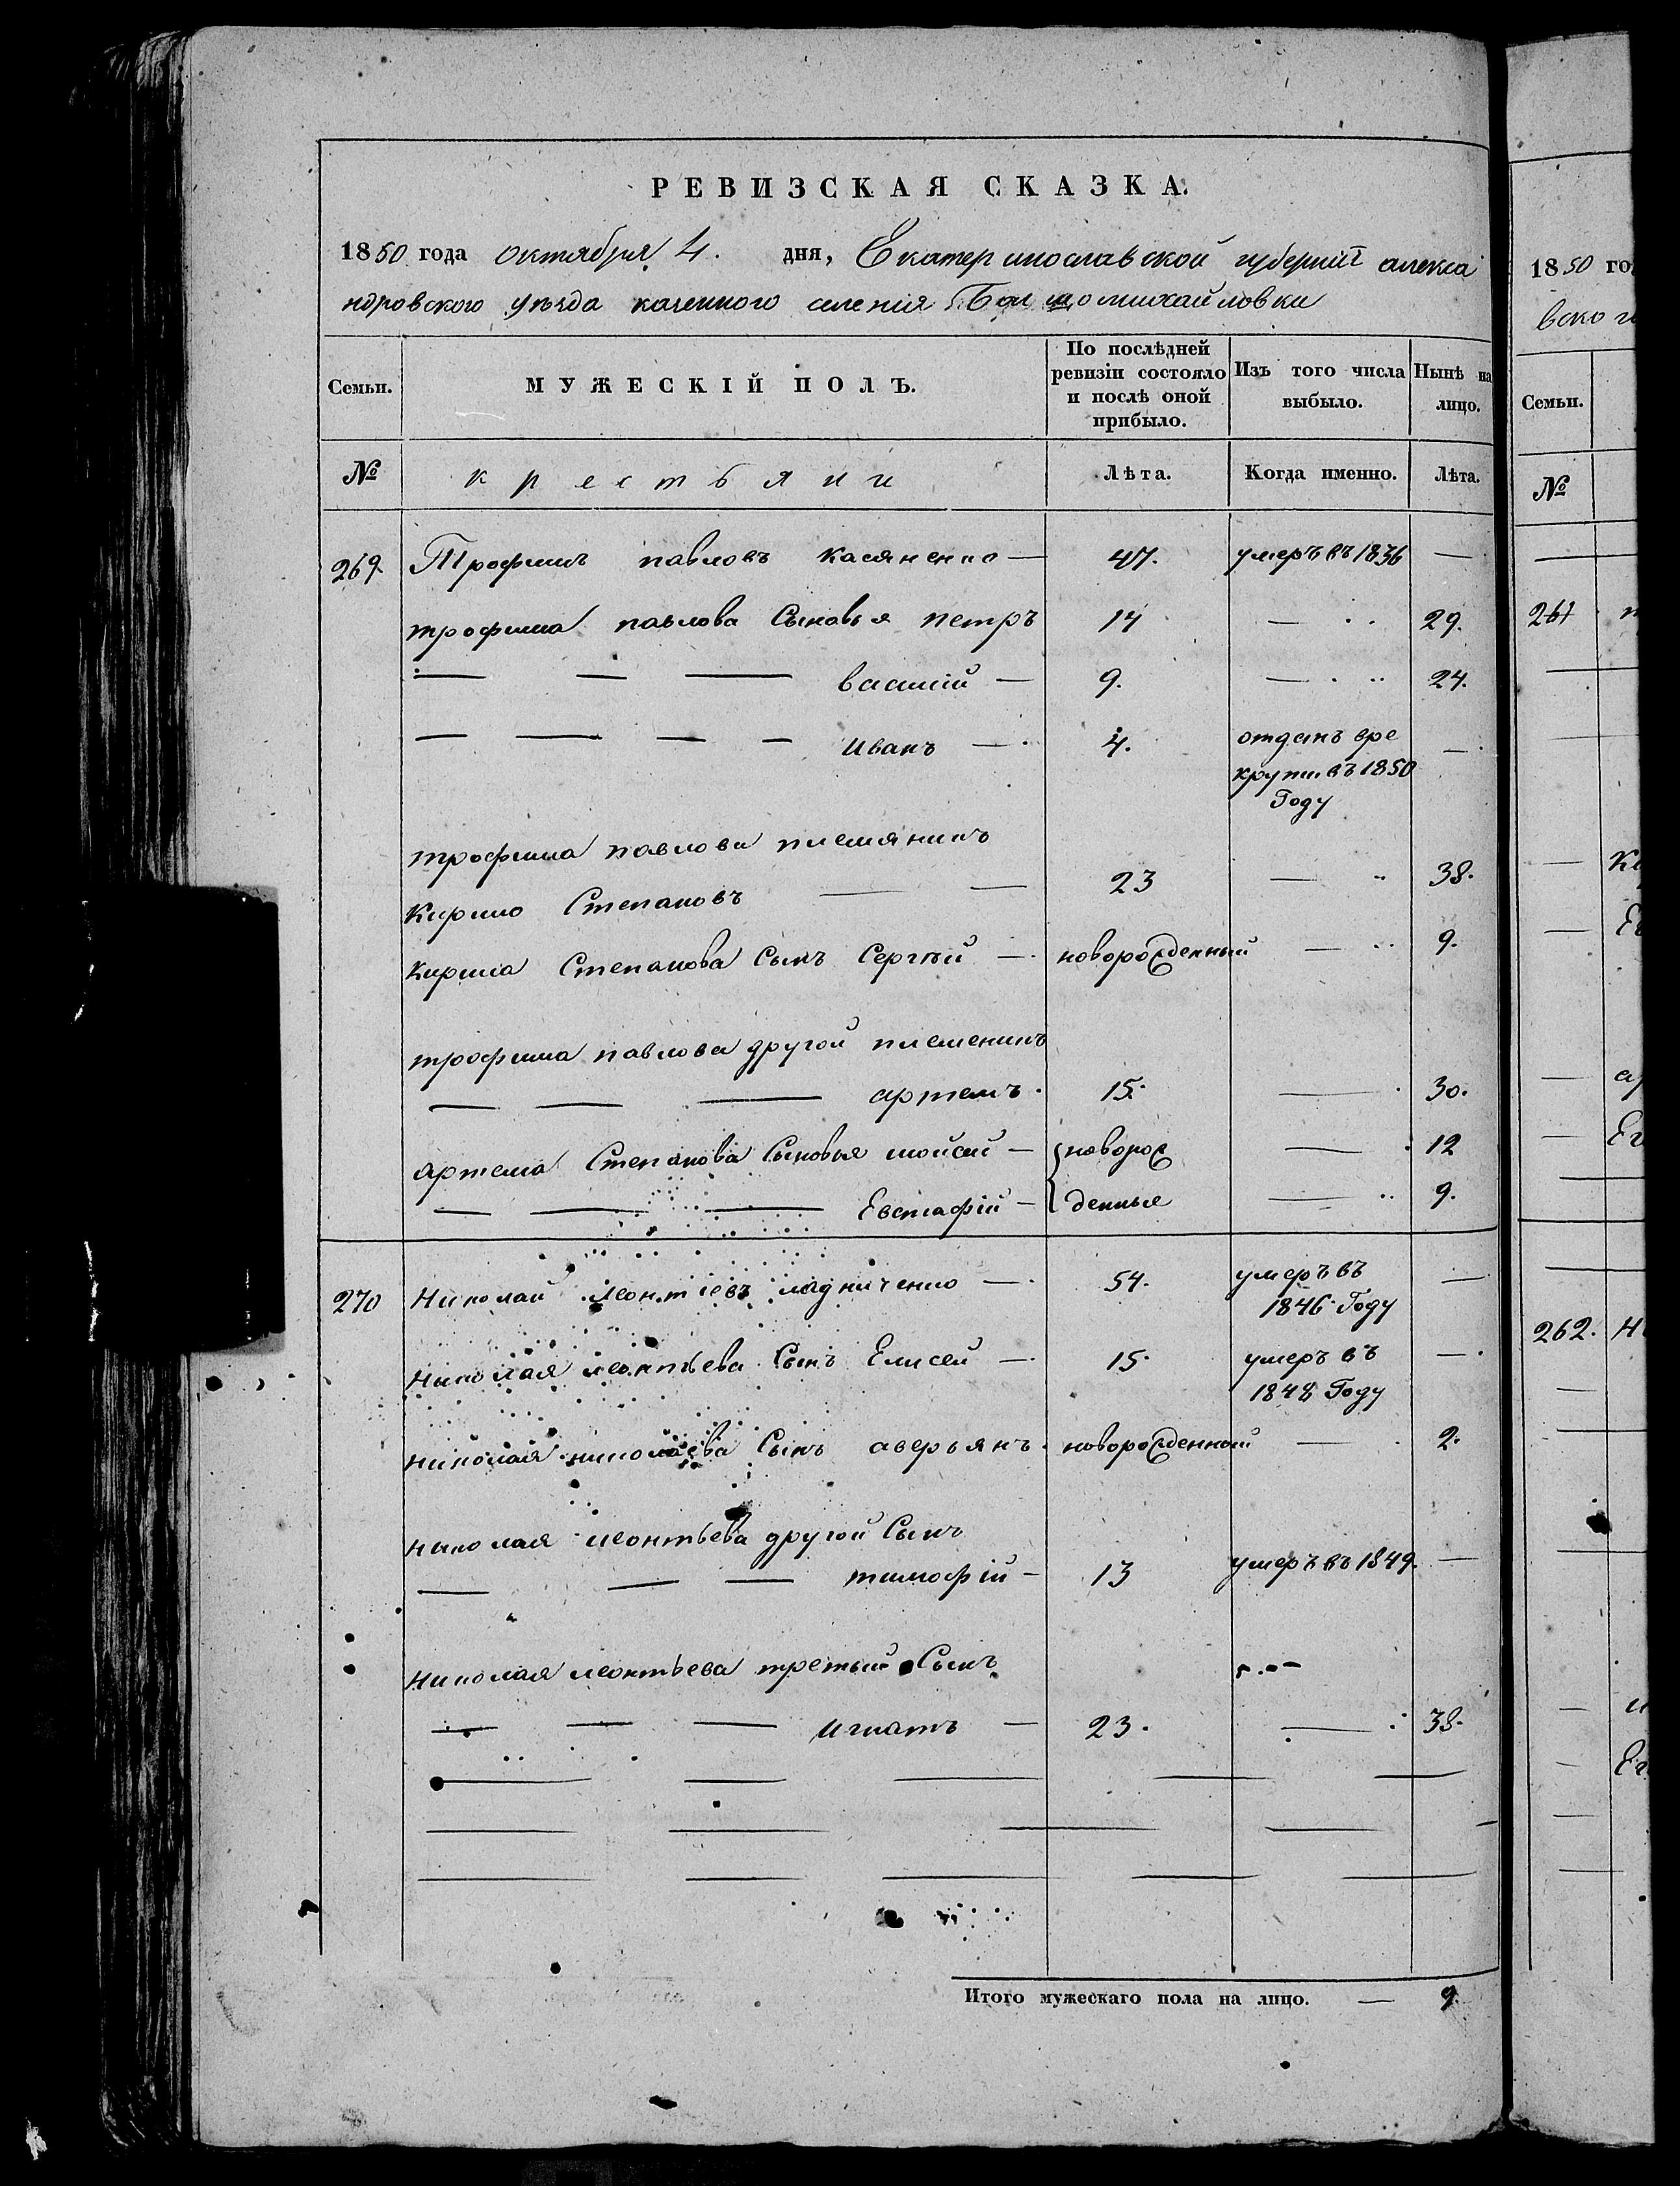 РЕВИЗСКАЯ СКАЗКА.
1850 года октября 4. дня, Екатеринославской губерніи алекса
ндровского уѣзда казенного селенія Большомихайловки
Семьи.
МУЖЕСКІЙ ПОЛЪ.
По послѣдней ревизіи состояло и послѣ оной прибыло.
Изъ того числа выбыло.
Нынѣ на лицо.
№ крестьяни Лѣта. Когда именно. Лѣта.
269. Трофимъ павловъ касяненко — 47. умеръ въ 1836 —
трофима павлова Сыновья петръ 14 — 29.
— — — василій — 9. — 24.
— — — — иванъ — 4. отданъ вре —
крути въ 1850
Году
трофима павлова племяникъ
Кирило Степановъ — — 23 — 38.
Кирила Степанова Сынъ Сергѣй — новорожденный — 9.
трофима павлова другой племеникъ
— — — артемъ. 15. — 30.
артема Степанова Сыновья мойсей — новорож — 12
— — — Евстафій — денные — 9.
270 Николай леонтіевъ ладниченко — 54. умеръ въ —
1846 Году
николая леонтьева Сынъ Елисей — 15. умеръ въ —
1848 Году
николая николаева Сынъ аверьянъ. новорожденный — 2.
николая леонтьева другой Сынъ
— — — тимофій — 13 умеръ въ 1849. —
николая леонтьева третьий Сынъ
— — — игнатъ — 23. — 38.
Итого мужескаго пола на лицо. — 9.
1850 го
вско
Семьи.
№
261
262.